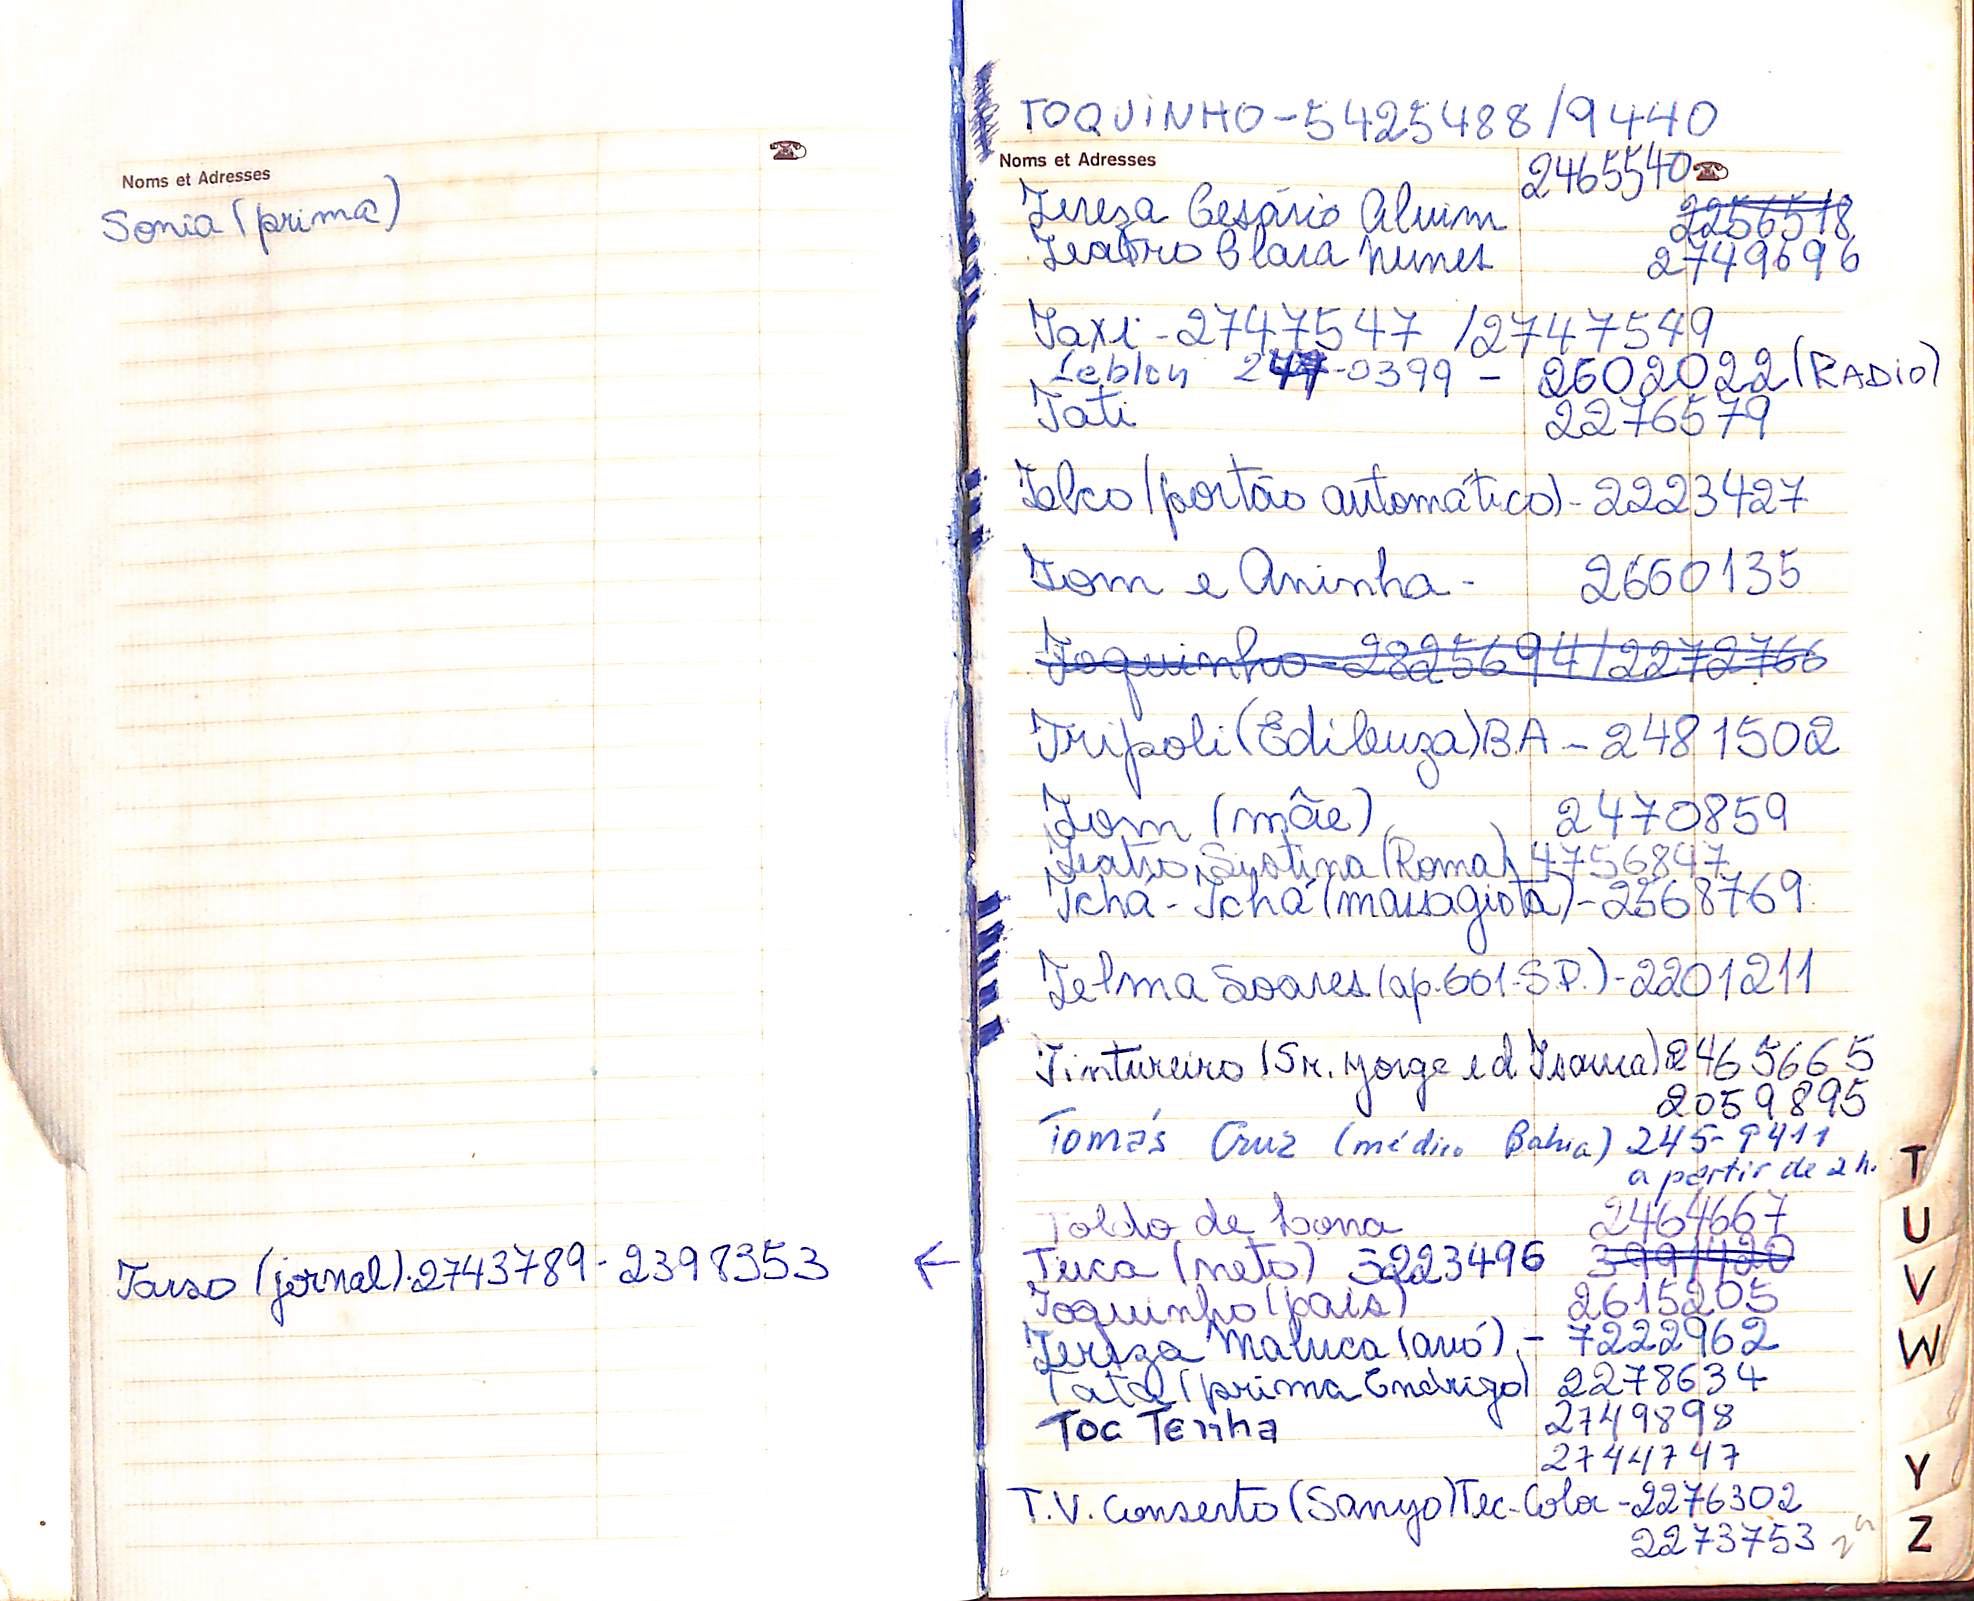 Noms et Adresses
Sonia (prima)
Tarso (jornal). 2743789 - 2398353
TOQUINHO - 5425488 / 9440
Noms et Adresses
2465540
Tereza Cesário Alvim 2256518
Teatro Clara Nunes 2749696
Taxi - 2747547 / 2747549
Leblon -0399 - 2602022 (RADIO)
Tati 2276579
Telco (portão automático) - 2223427
Tom e Aninha - 2660135
Toquinho - 2825694 / 2272766
Tripoli (Edileuza) BA - 2481502
Tom (mãe) 2470859
Teatro Systina (Roma) 4756847
Tchá - Tchá (massagista) - 2568769
Telma Soares (ap. 601 - S.P.) - 2201211
Tintureiro (Sr. Jorge e d Isaura) 2465665
2059895
Tomás Cruz (médico Bahia) 245-9411
a partir de 2 h.
Toldo de Lona 2464667
← Teuca (neto) 5223496 3991420
Toquinho (pais) 2615205
Tereza Maluca (avó) - 7222962
Tata (prima Endrigo) 2278634
Toc Tenha 2749898
2744747
T.V. Conserto (Sanyo) Tec-Color - 2276302
2273753 2ª
T
U
V
W
Y
Z